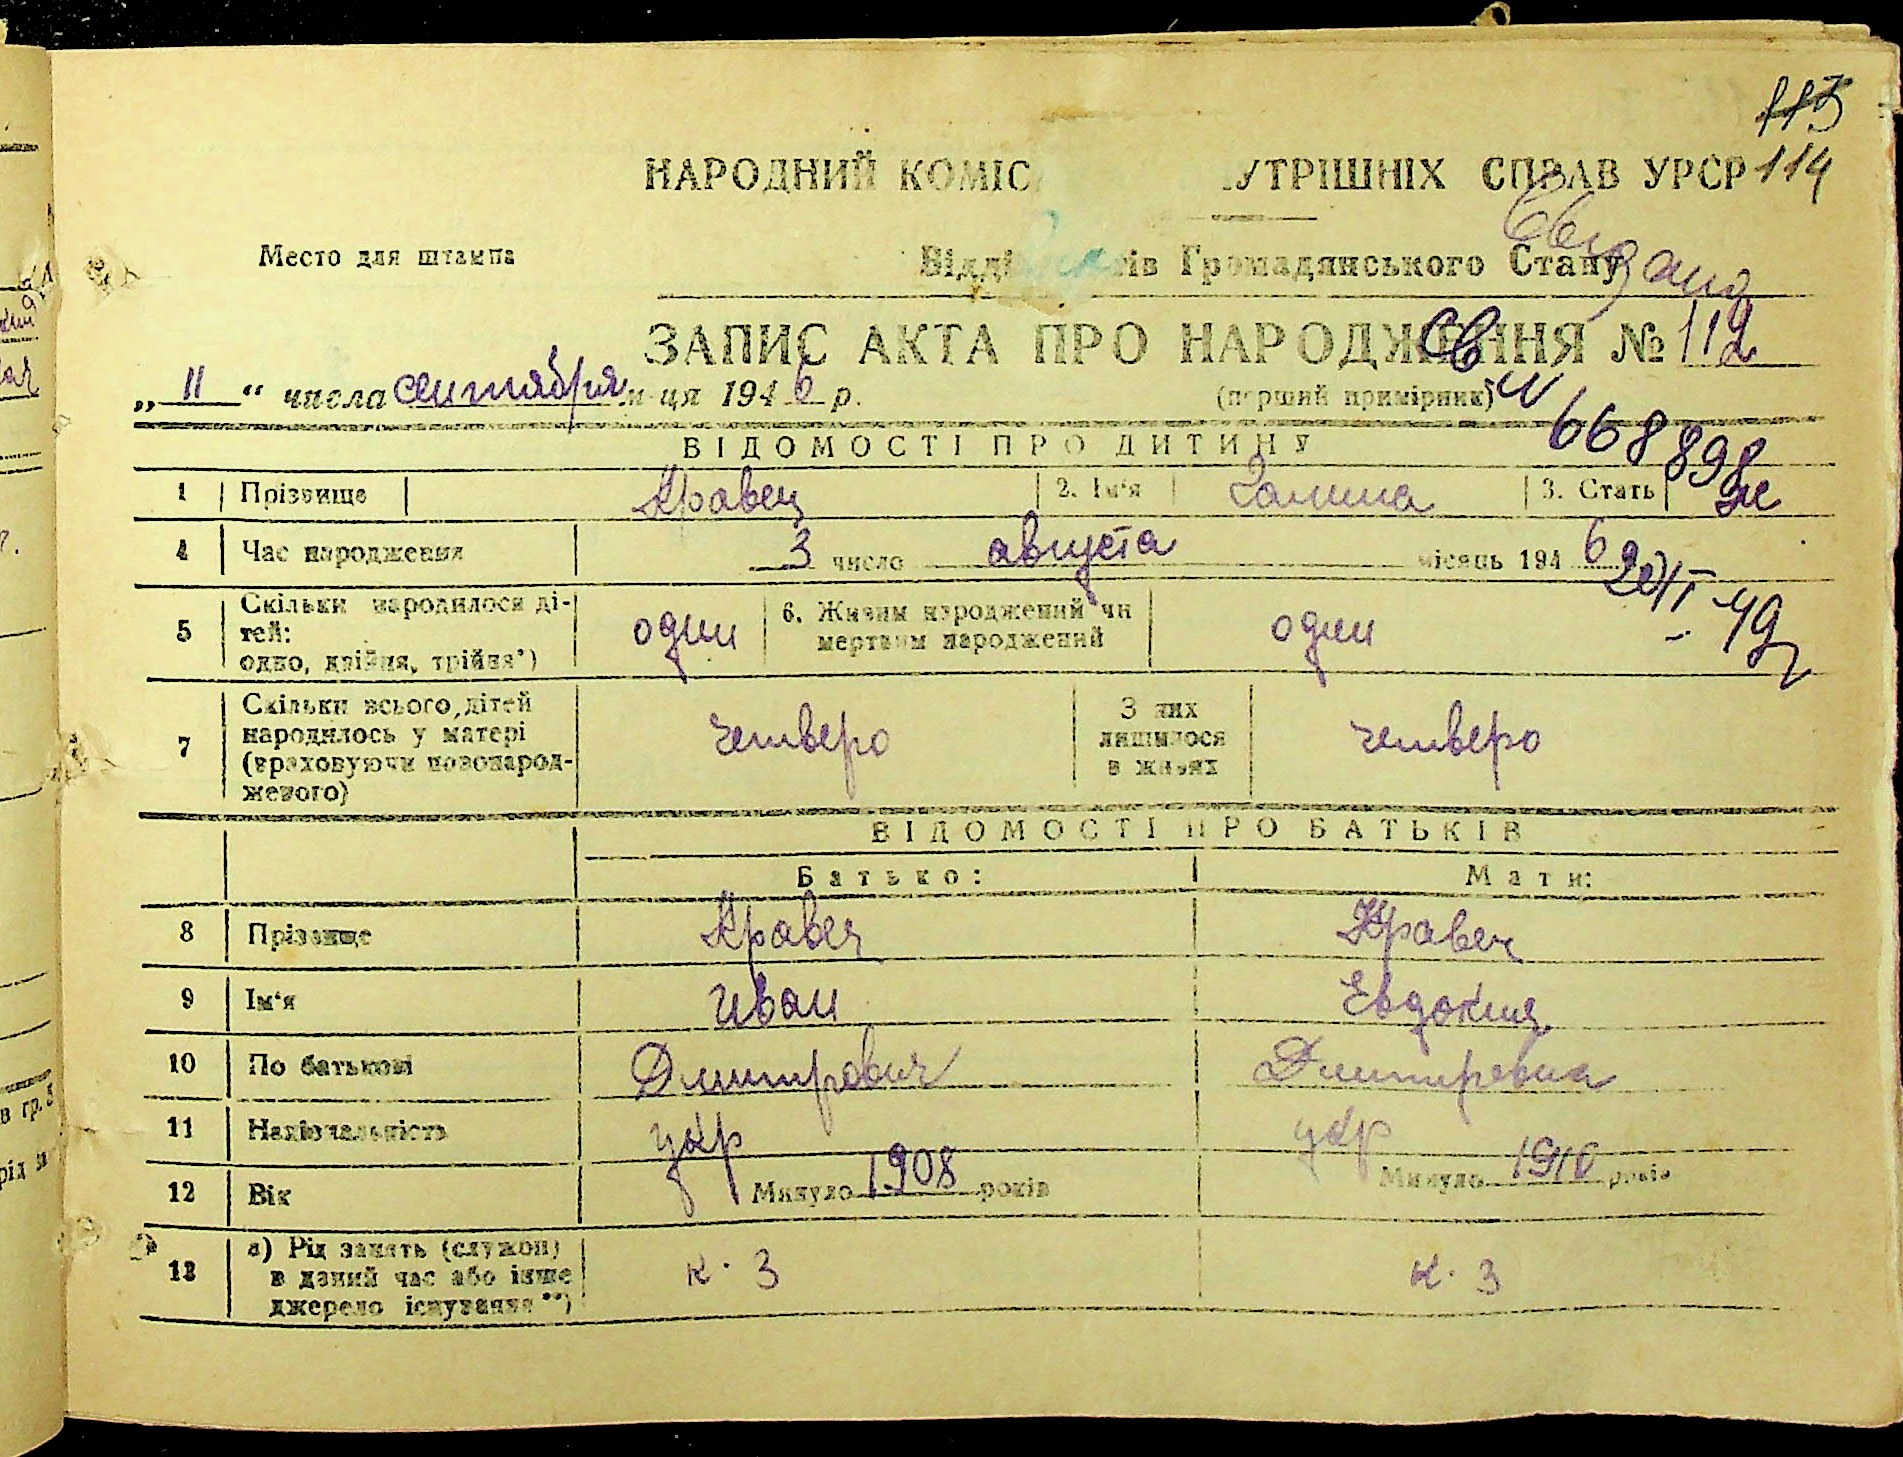 113
НАРОДНИЙ КОМІС УТРІШНІХ СПРАВ УРСР 114
Место для штампа
Відді ів Громадянського Стану
ЗАПИС АКТА ПРО НАРОДЖЕННЯ № 112
„ 11 “ числа сентября м-ця 1946 р.
(перший примірник)
св N 668898
ВІДОМОСТІ ПРО ДИТИНУ
1 Прізвище Кравец 2. Ім'я Галина 3. Стать ж
4 Час народження 3 число августа місяць 1946
5 Скільки народилося ді-
тей:
одно, двійня, трійня*) один 6. Живим народжений чи
мертвим народжений один
7 Скільки всього дітей
народилось у матері
(враховуючи новонарод-
женого) четверо З них
лишилося
в живих четверо
ВІДОМОСТІ ПРО БАТЬКІВ
Батько: Мати:
8 Прізвище Кравец Кравец
9 Ім'я Иван Евдокия
10 По батькові Дмитрович Дмитревна
11 Національність укр укр
12 Вік Минуло 1908 років Минуло 1910 років
13 а) Рід занять (служби)
в даний час або інше
джерело існування**) к. з к. з